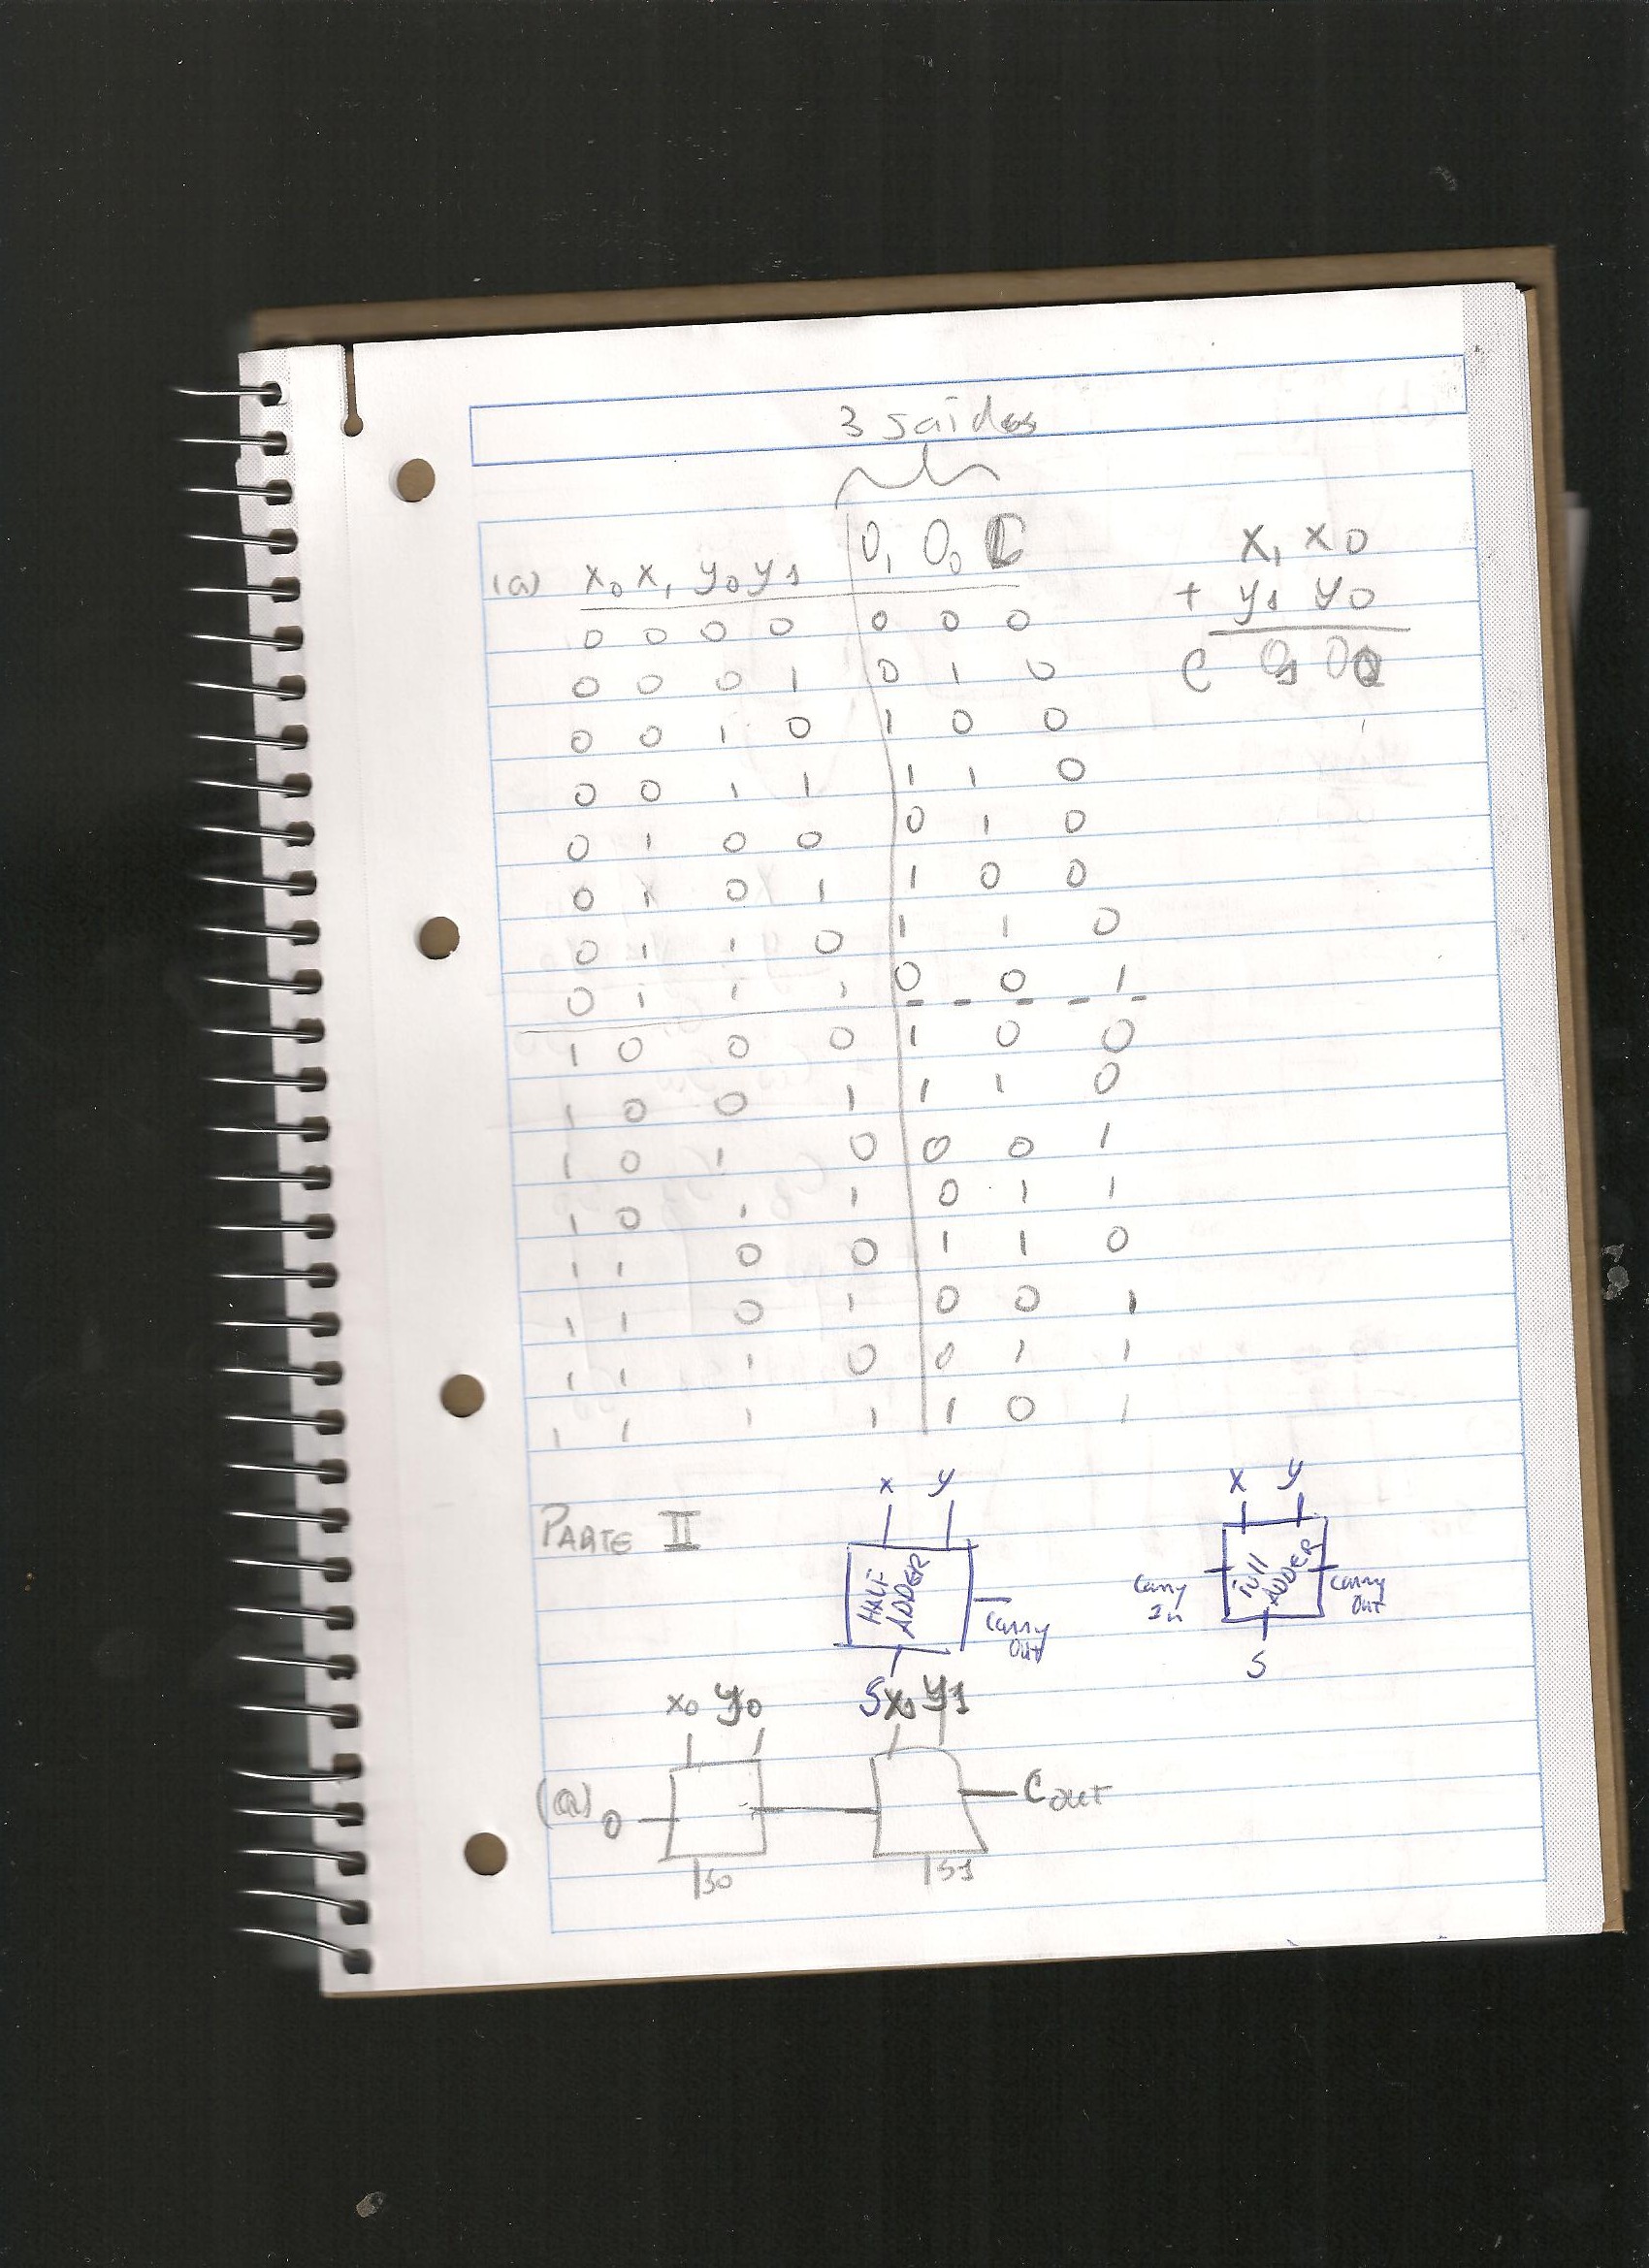 3 saídas
(a) x₀ x₁ y₀ y₁ O₁ O₀ C
0 0 0 0 0 0 0
0 0 0 1 0 1 0
0 0 1 0 1 0 0
0 0 1 1 1 1 0
0 1 0 0 0 1 0
0 1 0 1 1 0 0
0 1 1 0 1 1 0
0 1 1 1 0 0 1
1 0 0 0 1 0 0
1 0 0 1 1 1 0
1 0 1 0 0 0 1
1 0 1 1 0 1 1
1 1 0 0 1 1 0
1 1 0 1 0 0 1
1 1 1 0 0 1 1
1 1 1 1 1 0 1
x₁ x0
+ y1 y0
C O1 O0
PARTE II
x y
HALF
ADDER
Carry
Out
S
x y
Carry
In
Full
ADDER
Carry
Out
S
x0 y0 x1 y1
(a) 0 Cout
S0 S1